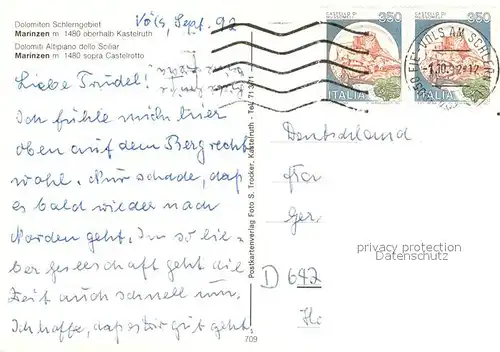 Dolomiten Schlerngebiet
Marinzen m 1480 oberhalb Kastelruth
Dolomiti Altipiano dello Sciliar
Marinzen m 1480 sopra Castelrotto
Völs, Sept. 92
Liebe Trudel!
Ich fühle mich hier
oben auf dem Berg recht
wohl. Nur schade, daß
es bald wieder nach
Norden geht. In so lie-
ber Gesellschaft geht die
Zeit auch schnell um.
Ich hoffe, daß es Dir gut geht.
Postkartenverlag Foto S. Trocker, Kastelruth - Tel. 71371
709
CASTELLO DI MUSSOMELI
350
ITALIA
CASTELLO DI MUSSOMELI
350
ITALIA
VÖLS AM SCHLERN
Deutschland
Frau
Ger
D 647
privacy protection
Datenschutz